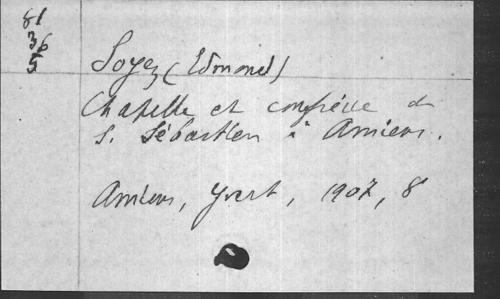 81
36
5
Soyez (Edmond)
Chapelle et confrérie de
S. Sébastien à Amiens.
Amiens, Yvert, 1907, 8°